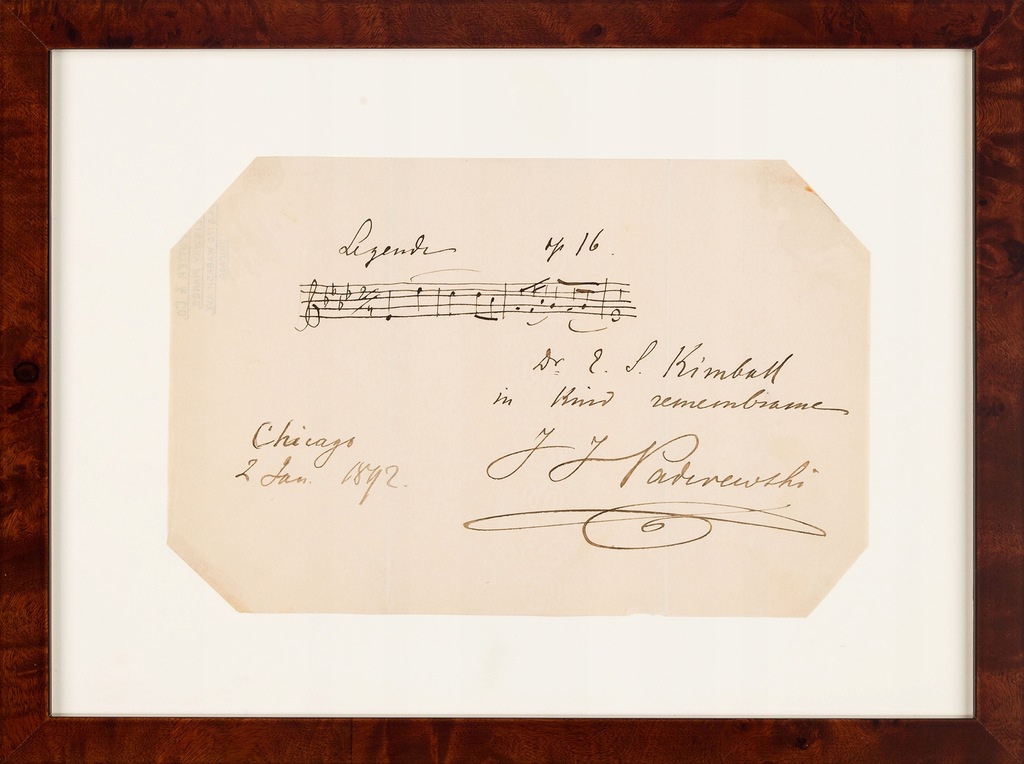 Legende op 16.
Dr. E. S. Kimball
in Kind remembrance
Chicago
2 Jan. 1892.
I J Paderewski